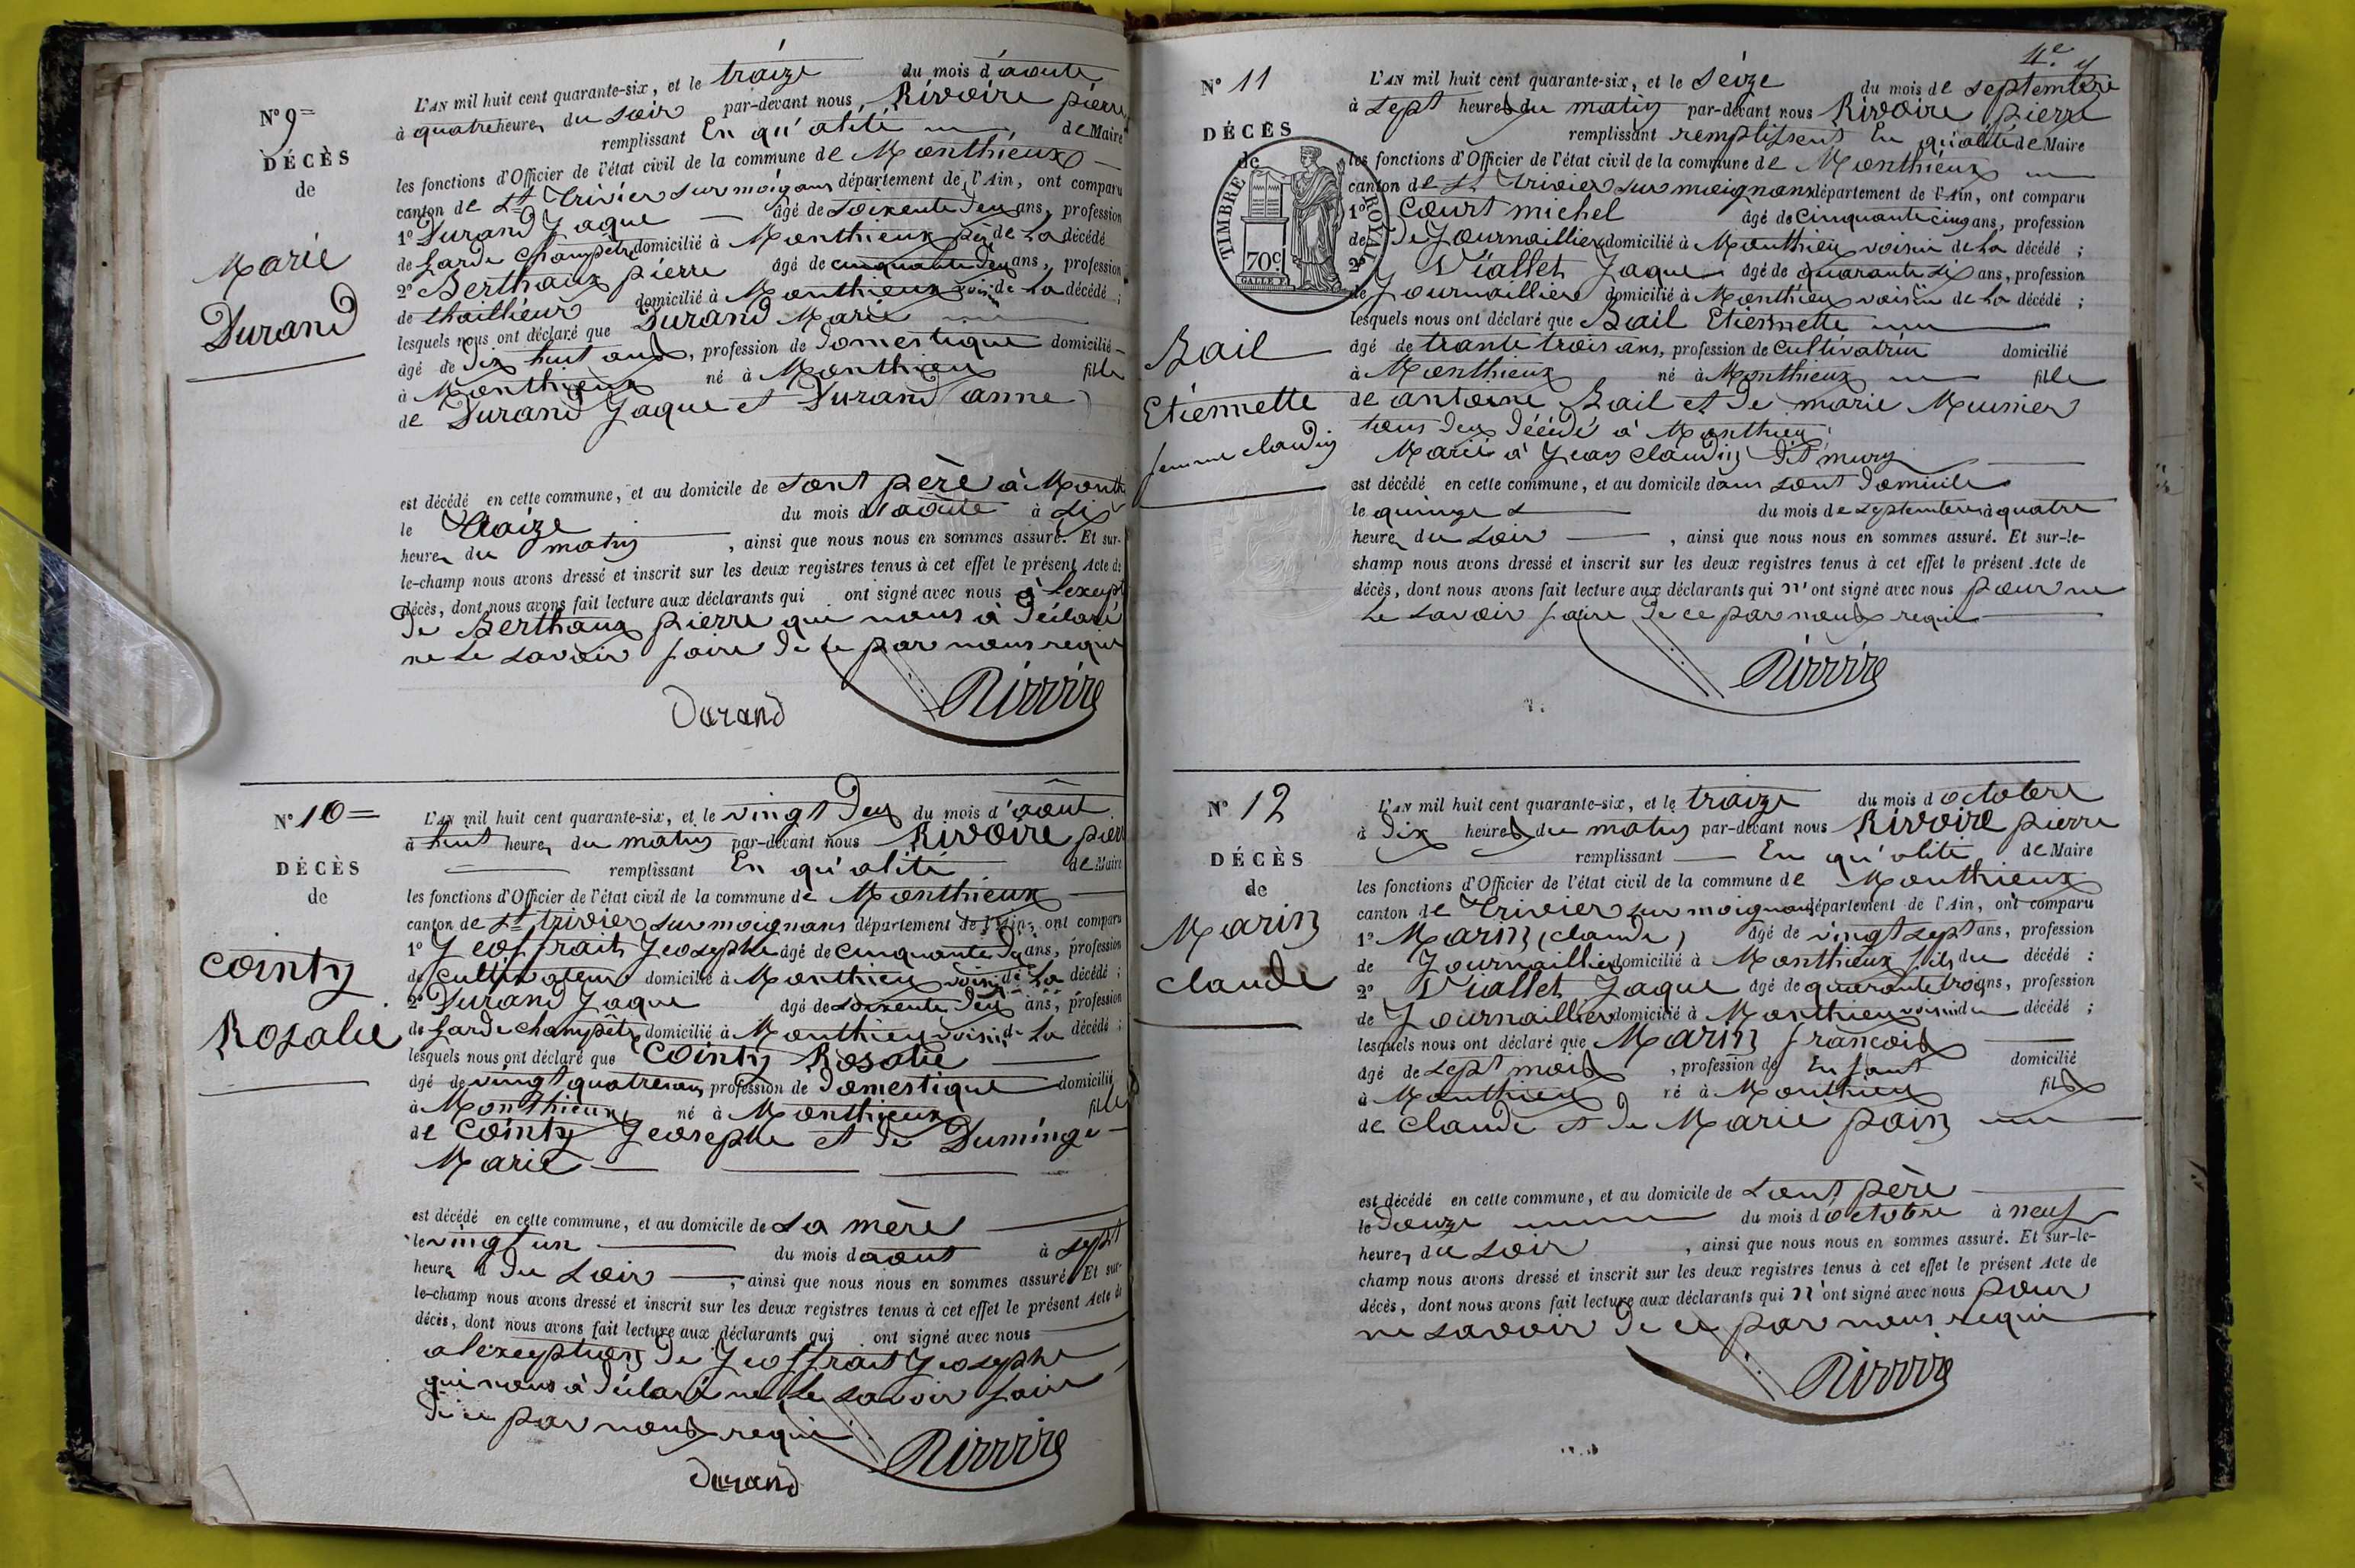 N° 9=
DÉCÈS
de
Marie
Durand
L'AN mil huit cent quarante-six, et le traize du mois d'aoute
à quatre heures du soir par-devant nous Rivoire pierre
remplissant En qu'alité de Maire
les fonctions d'Officier de l'état civil de la commune de Monthieux
canton de St Trivier sur moignans département de l'Ain, ont comparu
1° Durand Jaque âgé de soixente deux ans, profession
de garde champêtre domicilié à Monthieux père de La décédé
2° Berthaux pierre âgé de cinquante deux ans, profession
de thaillieur domicilié à Monthieux voisin de La décédé ;
lesquels nous ont déclaré que Durand Marie
âgé de dix huit ans, profession de Domestique domicilié
à Monthieux né à Monthieux fille
de Durand Jaque et Durand anne
est décédé en cette commune, et au domicile de sont père à Month
le Traize du mois d'aoute à six
heures du matin, ainsi que nous nous en sommes assuré. Et sur-
le-champ nous avons dressé et inscrit sur les deux registres tenus à cet effet le présent Acte de
décès, dont nous avons fait lecture aux déclarants qui ont signé avec nous à l'exept
de Berthaux pierre qui nous à déclaré
ne le savoir faire de ce par nous requi
Rivoire
Durand
N° 10=
DÉCÈS
de
Cointy
Rosalie
L'AN mil huit cent quarante-six, et le vingt deux du mois d'août
à huit heures du matin par-devant nous Rivoire pierr
remplissant En qu'alité de Maire
les fonctions d'Officier de l'état civil de la commune de Monthieux
canton de St trivier sur moignans département de l'Ain, ont comparu
1° Jeoffrait Jeosephe âgé de cinquante deux ans, profession
de Cultivateur domicilié à Monthieux voisin de La décédé ;
2° Durand Jaque âgé de soixente deux ans, profession
de garde champêtre domicilié à Monthieux voisin de La décédé ;
lesquels nous ont déclaré que Cointy Rosalie
âgé de vingt quatre ans, profession de Domestique domicilié
à Monthieux né à Monthieux fille
de Cointy Jeosephe et de Duminge
Marie
est décédé en cette commune, et au domicile de La mère
le vingt un du mois d'aout à sept
heures du soir, ainsi que nous nous en sommes assuré. Et sur-
le-champ nous avons dressé et inscrit sur les deux registres tenus à cet effet le présent Acte de
décès, dont nous avons fait lecture aux déclarants qui ont signé avec nous
a lexception de Jeoffrait Jeosephe
qui nous à déclaré ne le savoir faire
de ce par nous requi
Rivoire
Durand
4e
N° 11
DÉCÈS
de
TIMBRE ROYAL
70c.
Bail
Etiennette
femme claudin
L'AN mil huit cent quarante-six, et le seize du mois de septembre
à sept heures du matin par-devant nous Rivoire pierre
remplissant remplissent En qu'alité de Maire
les fonctions d'Officier de l'état civil de la commune de Monthieux
canton de St Trivier sur moignans département de l'Ain, ont comparu
1° Court michel âgé de cinquante cinq ans, profession
de De Journaillier domicilié à Monthieu voisin de La décédé ;
2° Viallet Jaque âgé de quarante six ans, profession
de Journaillier domicilié à Monthieu voisin de La décédé ;
lesquels nous ont déclaré que Bail Etiennette
âgé de trante trois ans, profession de Cultivatrice domicilié
à Monthieux né à Monthieux fille
de antoine Bail et de marie Meunier
tous deux décédé à Monthieu
Marié à Jean claudin dit mury
est décédé en cette commune, et au domicile dans sont Domicile
le quinze du mois de septembre à quatre
heures du soir, ainsi que nous nous en sommes assuré. Et sur-le-
champ nous avons dressé et inscrit sur les deux registres tenus à cet effet le présent Acte de
décès, dont nous avons fait lecture aux déclarants qui n'ont signé avec nous pour ne
le savoir faire de ce par nous requi
Rivoire
N° 12
DÉCÈS
de
Marin
claude
L'AN mil huit cent quarante-six, et le traize du mois d'octobre
à dix heures du matin par-devant nous Rivoire pierre
remplissant En qu'alité de Maire
les fonctions d'Officier de l'état civil de la commune de Monthieux
canton de Trivier sur moignans département de l'Ain, ont comparu
1° Marin (claude) âgé de vingt sept ans, profession
de Journaillier domicilié à Monthieux fils du décédé ;
2° Viallet Jaque âgé de quarante trois ans, profession
de Journaillier domicilié à Monthieu voisin du décédé ;
lesquels nous ont déclaré que Marin françois
âgé de sept mois, profession de Enfant domicilié
à Monthieu né à Monthieu fils
de Claude et de Marie pain
est décédé en cette commune, et au domicile de sont père
le Douze du mois d'octobre à neuf
heures du soir, ainsi que nous nous en sommes assuré. Et sur-le-
champ nous avons dressé et inscrit sur les deux registres tenus à cet effet le présent Acte de
décès, dont nous avons fait lecture aux déclarants qui n'ont signé avec nous pour
ne savoir de ce par nous requi
Rivoire